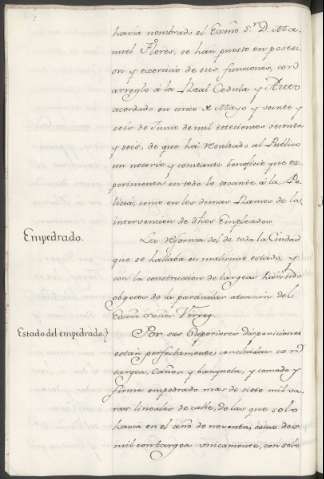 havia nombrado el Exmo. Sr. D. Ma-
nuel Flores, se han puesto en posesi-
on y exercicio de sus funciones, con
arreglo á la Real Cedula y Auto
acordado en cinco de Mayo y veinte y
seis de Junio de mil setecientos ochenta
y seis, de que há resultado al Publico
un notorio y constante beneficio que ex-
perimenta en todo lo tocante á la Po-
licia, como en los demas Ramos de la
intervencion de dhos Empleados.
Empedrado.
La reforma del de toda la Ciudad
que se hallaba en malisimo estado, y
con la construccion de targeas há sido
objeto de la particular atencion del
Exmo Señor Virrey.
Estado del empedrado.
Por sus Superiores disposiciones
están perfectamente concluidas con
targea, caños y banqueta, y comodo y
firme empedrado mas de siete mil va-
ras lineales de calle, de las que solo
havia en el año de noventa, dos
mil con targea unicamente, con solo